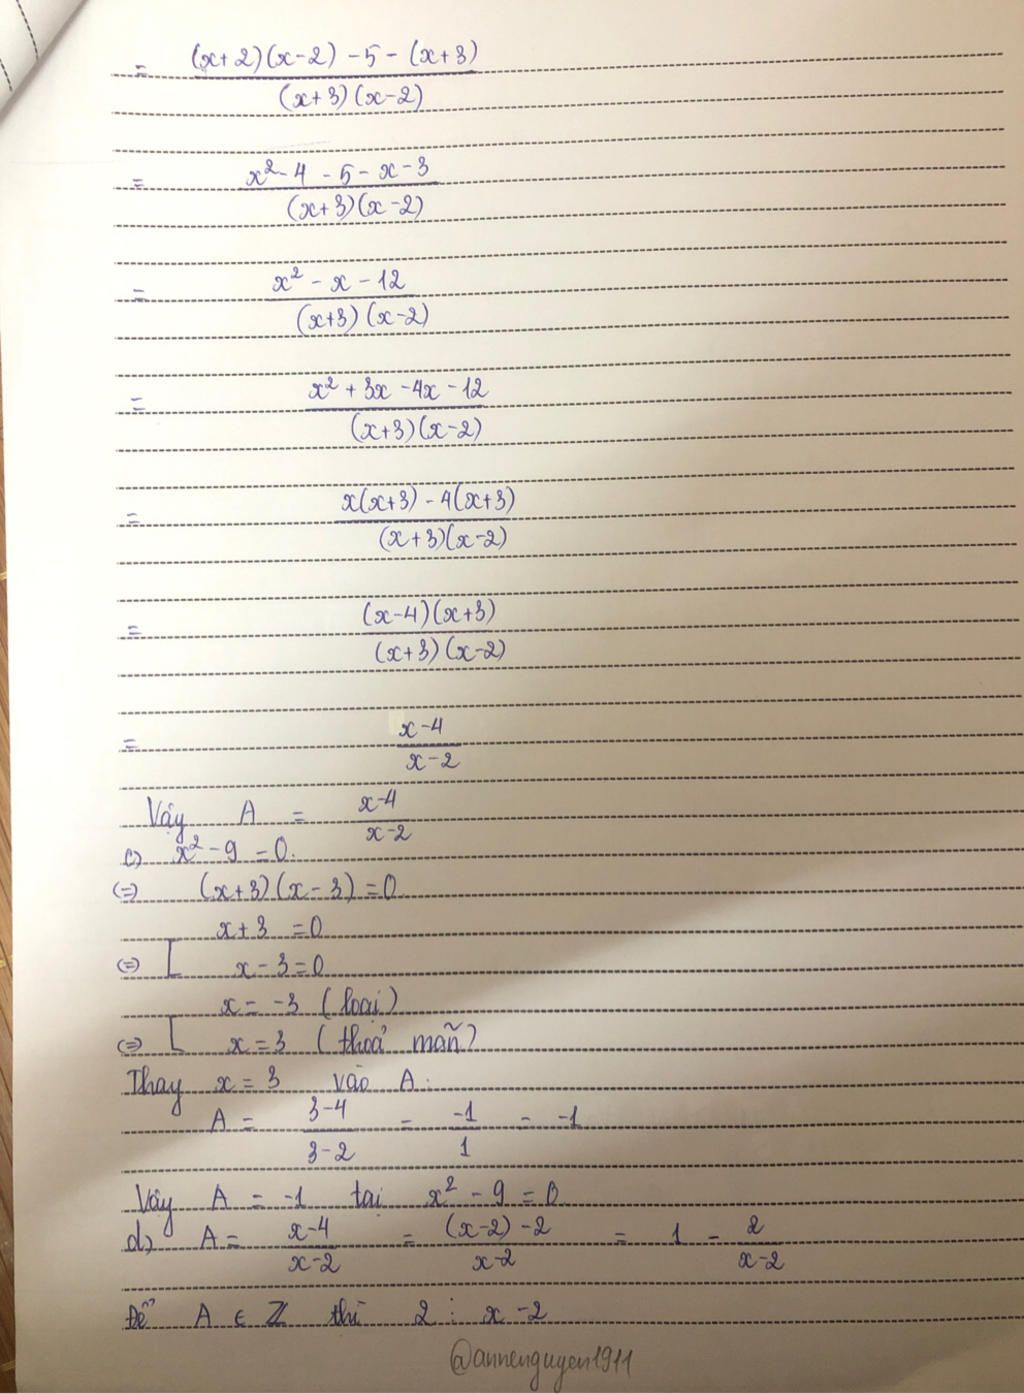 = \frac{(x+2)(x-2) - 5 - (x+3)}{(x+3)(x-2)}
= \frac{x^2 - 4 - 5 - x - 3}{(x+3)(x-2)}
= \frac{x^2 - x - 12}{(x+3)(x-2)}
= \frac{x^2 + 3x - 4x - 12}{(x+3)(x-2)}
= \frac{x(x+3) - 4(x+3)}{(x+3)(x-2)}
= \frac{(x-4)(x+3)}{(x+3)(x-2)}
= \frac{x-4}{x-2}
Vậy A = \frac{x-4}{x-2}
c) x^2 - 9 = 0.
(=) (x+3)(x-3) = 0
(=) [ x+3 = 0
x - 3 = 0
(=) [ x = -3 (loại)
x = 3 (thoả mãn)
Thay x = 3 vào A:
A = \frac{3-4}{3-2} = \frac{-1}{1} = -1
Vậy A = -1 tại x^2 - 9 = 0
d) A = \frac{x-4}{x-2} = \frac{(x-2)-2}{x-2} = 1 - \frac{2}{x-2}
Để A ∈ Z thì 2 ⋮ x - 2
@annenguyen1911